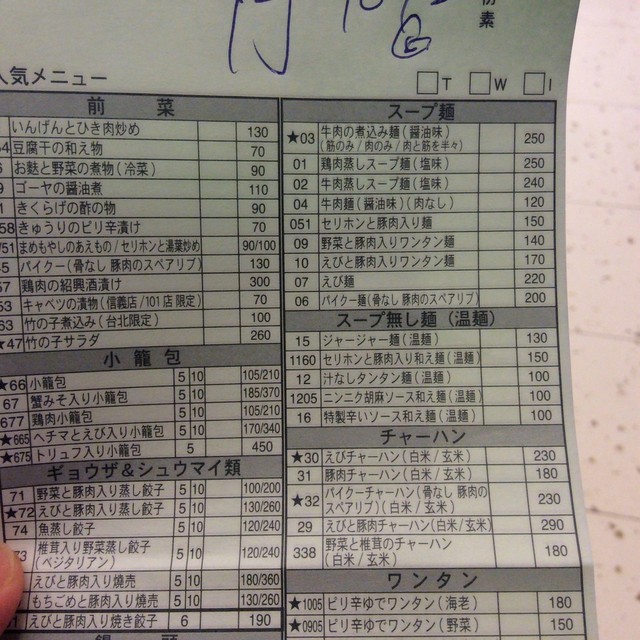 物素
人気メニュー
□T □W □I
前 菜
いんげんとひき肉炒め 130
豆腐干の和え物 70
お麩と野菜の煮物(冷菜) 90
ゴーヤの醤油煮 110
きくらげの酢の物 90
58 きゅうりのピリ辛漬け 70
/51 まめもやしのあえもの/セリホンと湯葉炒め 90/100
パイクー(骨なし 豚肉のスペアリブ) 130
鶏肉の紹興酒漬け 300
53 キャベツの漬物(信義店/101店 限定) 70
63 竹の子煮込み(台北限定) 100
★47 竹の子サラダ 260
小 籠 包
★66 小籠包 5 10 105/210
67 蟹みそ入り小籠包 5 10 185/370
677 鶏肉小籠包 5 10 105/210
★665 ヘチマとえび入り小籠包 5 10 170/340
★675 トリュフ入り小籠包 5 450
ギョウザ&シュウマイ類
71 野菜と豚肉入り蒸し餃子 5 10 100/200
★72 えびと豚肉入り蒸し餃子 5 10 130/260
74 魚蒸し餃子 5 10 120/240
73 椎茸入り野菜蒸し餃子(ベジタリアン) 5 10 120/240
えびと豚肉入り焼売 5 10 180/360
もちごめと豚肉入り焼売 5 10 130/260
えびと豚肉入り焼き餃子 6 190
スープ麺
★03 牛肉の煮込み麺(醤油味)(筋のみ/肉のみ/肉と筋を半々) 250
01 鶏肉蒸しスープ麺(塩味) 250
02 牛肉蒸しスープ麺(塩味) 240
04 牛麺(醤油味)(肉なし) 120
051 セリホンと豚肉入り麺 150
09 野菜と豚肉入りワンタン麺 140
10 えびと豚肉入りワンタン麺 170
07 えび麺 220
06 パイクー麺(骨なし 豚肉のスペアリブ) 200
スープ無し麺(温麺)
15 ジャージャー麺(温麺) 130
1160 セリホンと豚肉入り和え麺(温麺) 150
12 汁なしタンタン麺(温麺) 100
1205 ニンニク胡麻ソース和え麺(温麺) 100
16 特製辛いソース和え麺(温麺) 100
チャーハン
★30 えびチャーハン(白米/玄米) 230
31 豚肉チャーハン(白米/玄米) 180
★32 パイクーチャーハン(骨なし 豚肉のスペアリブ)(白米/玄米) 230
29 えびと豚肉チャーハン(白米/玄米) 290
338 野菜と椎茸のチャーハン(白米/玄米) 180
ワンタン
★1005 ピリ辛ゆでワンタン(海老) 180
★0905 ピリ辛ゆでワンタン(野菜) 150